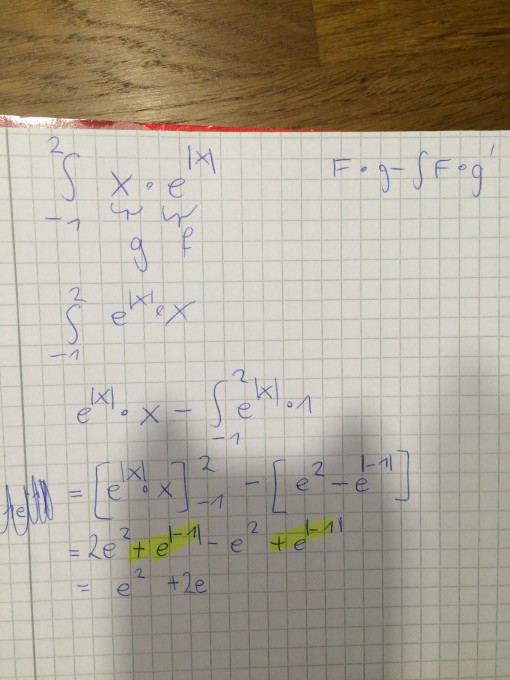 2
∫ x · e^|x|    F · g - ∫ F · g'
-1
g f
2
∫ e^|x| · x
-1
e^|x| · x - ∫_{-1}^{2} e^|x| · 1
= [e^|x| · x]_{-1}^{2} - [e^2 - e^|-1|]
= 2e^2 + e^|-1| - e^2 + e^|-1|
= e^2 + 2e